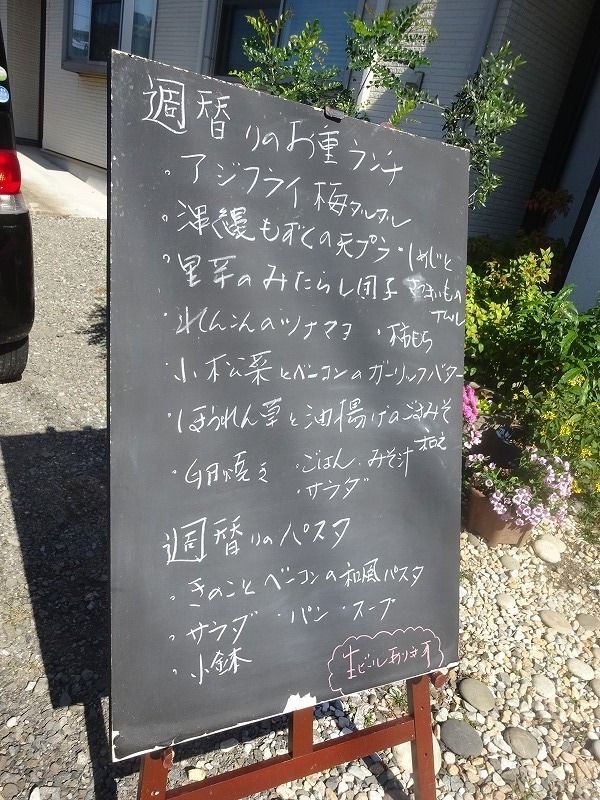 週替りのお重ランチ
・アジフライ 梅タルタル
・沖縄もずくの天プラ ・しめじと
・里芋のみたらし団子 さつまいもの
・れんこんのツナマヨ ・柿もち
・小松菜とベーコンのガーリックバター
・ほうれん草と油揚げのごまみそ
和え
・卵焼き ・ごはん・みそ汁
・サラダ
週替りのパスタ
・きのことベーコンの和風パスタ
・サラダ ・パン ・スープ
・小鉢
生ビールあります